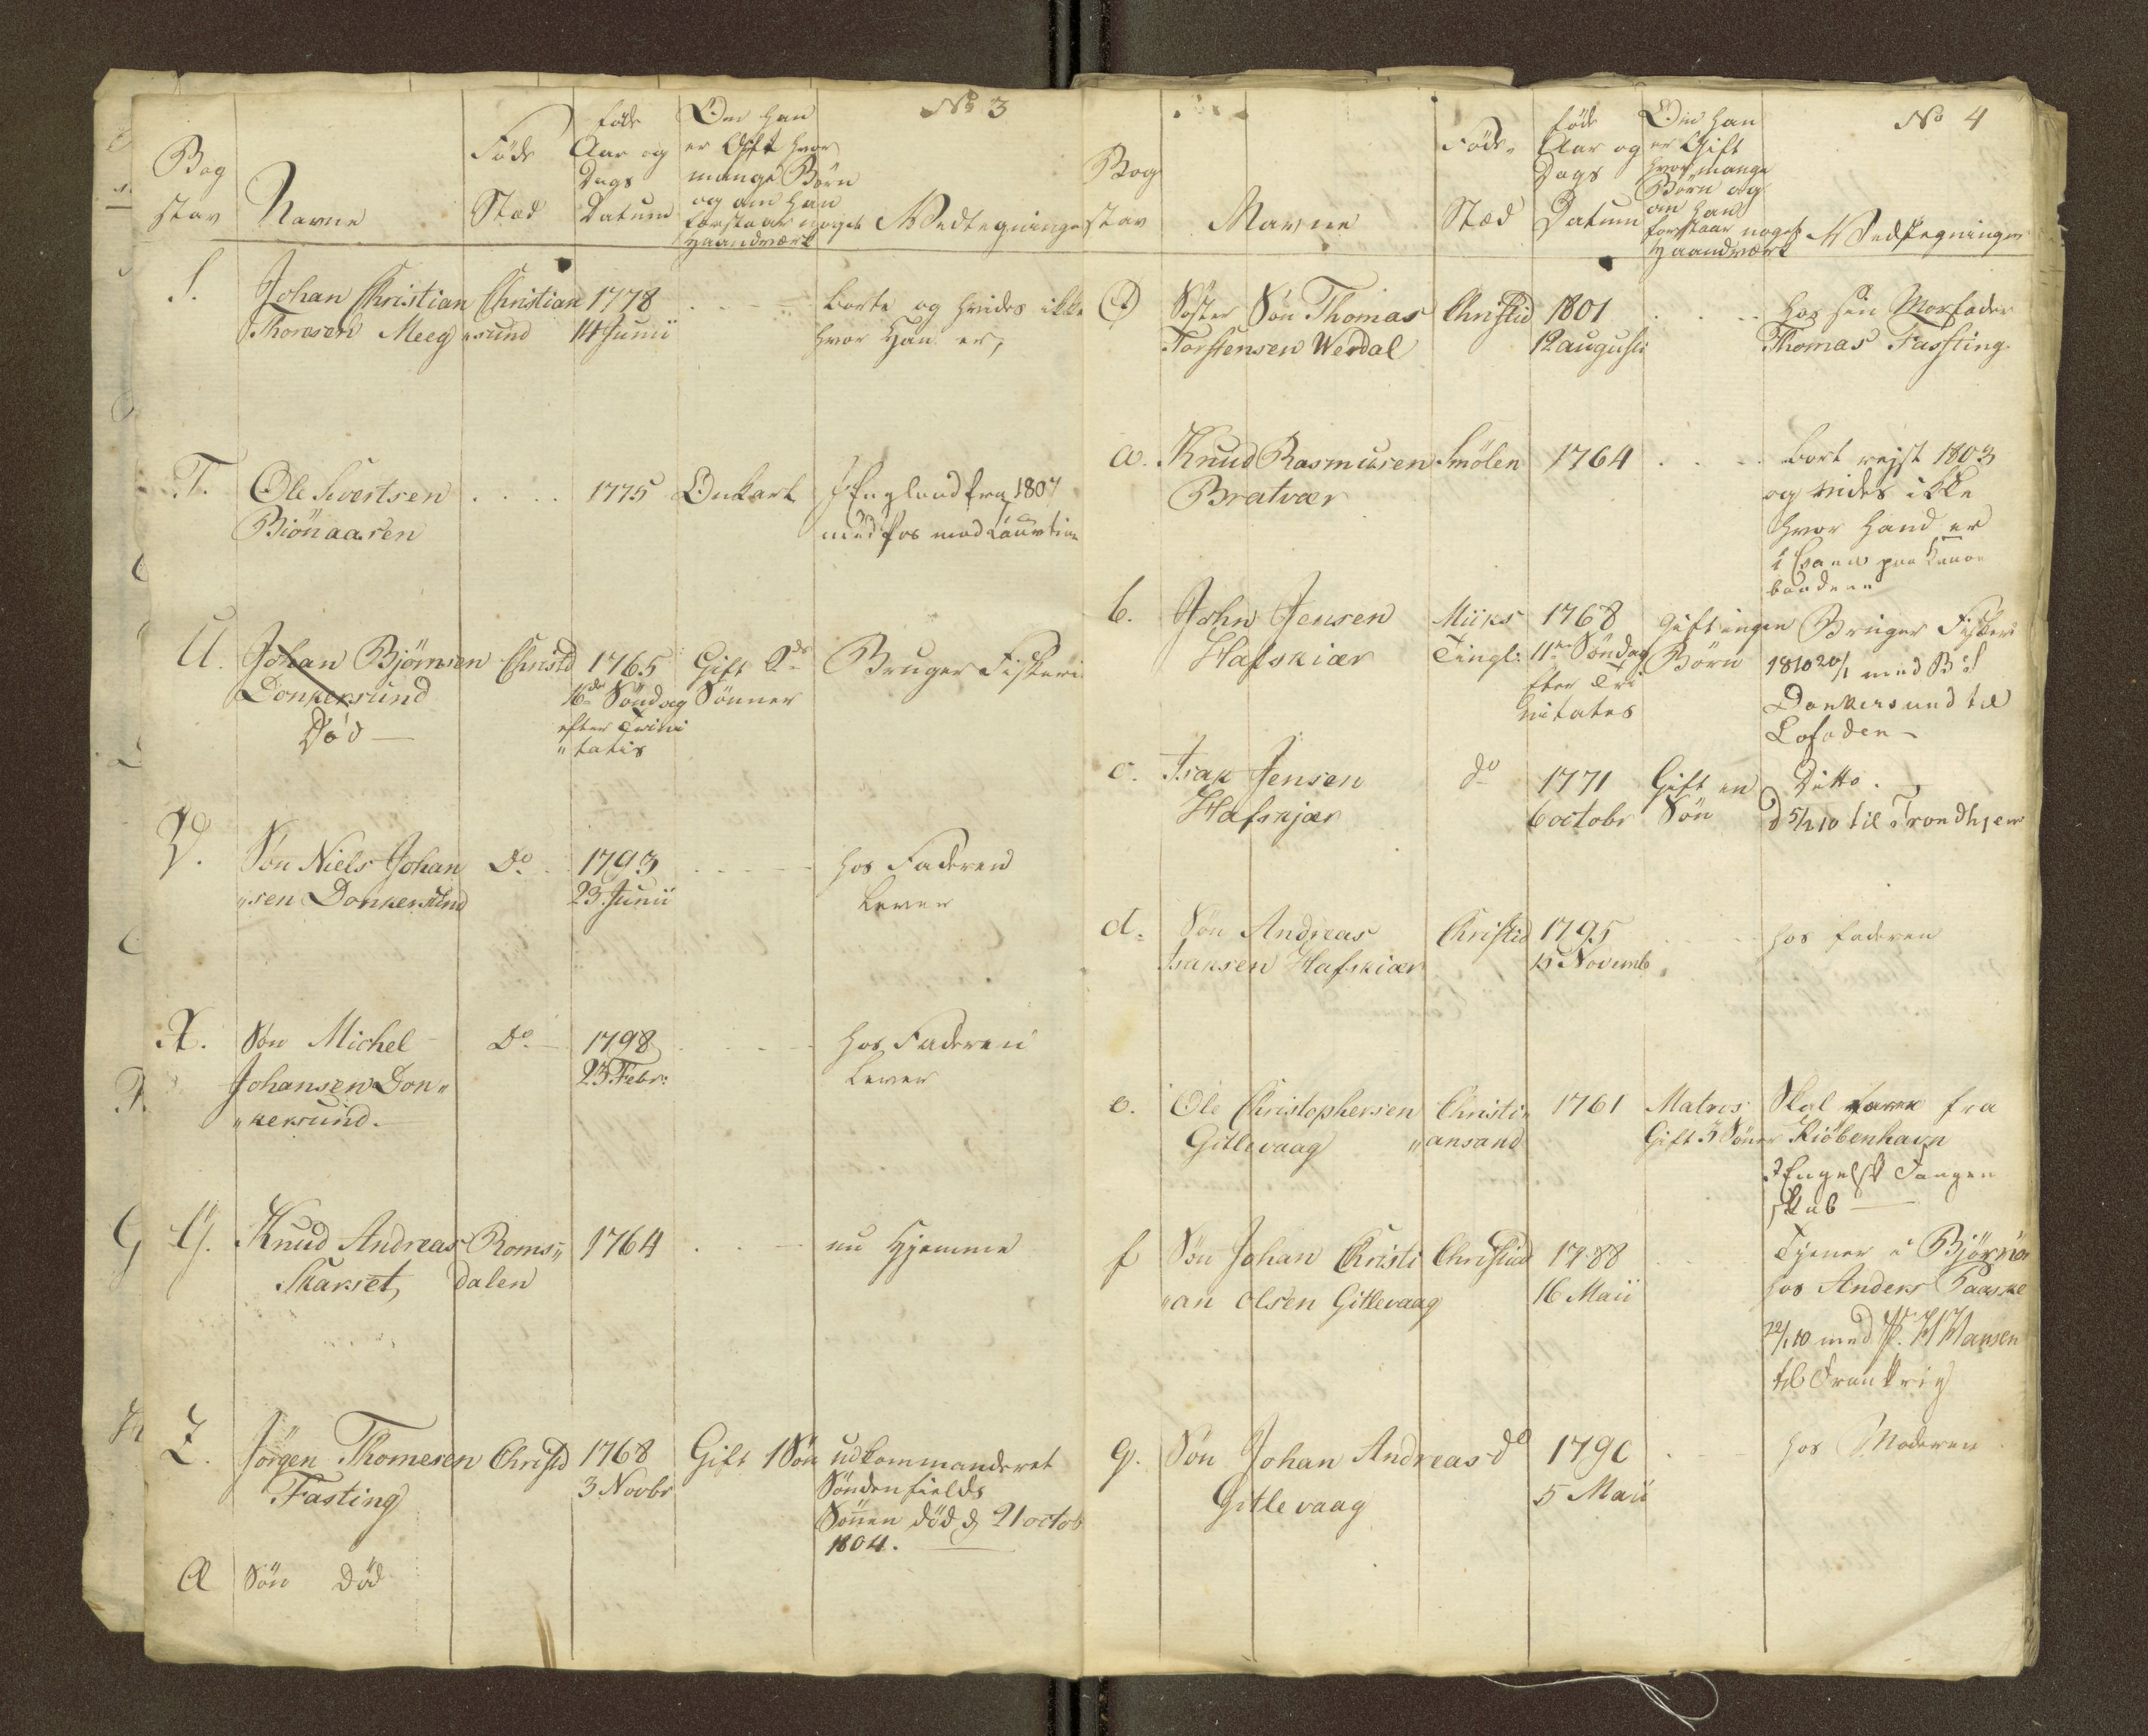 No 3
Bog
stav
Navne
Föde
Stæd
föde
Aar og
Dags
Datum
Om han
er Gift hvor
mange Börn
og om han
forstaar noget
Haandværk
Vedtegninger
S.
Johan Christian
Thomesen Meeg
Christian
sund
1778
14 Junii
. . . .
borte og vides ikke
hvor Han er,
T.
Ole Sivertsen
Biönaasen
. . . .
1775
Enkart
I England fra 1807
med
U.
Johan Björnsen
Donkersund
Död
Christd
1765
16de Söndag
efter Trini
"tatis
Gift 2de
Sönner
Bruger Fiskeri
V.
Sön Niels Johan
"sen Donkersund
Do
1793
23. Junii
. . . .
hos Faderen
lever
X.
Sön Michel
Johansen Don"
"kersund.
Do
1798
23 Febr:
. . . .
hos Faderen
lever
Y.
Knud Andreas
Skarset,
Roms"
dalen
1764
. . .
nu Hjemme
Z.
Jörgen Thomesen
Fasting
Christd
1768
3 Novbr
Gift 1 Sön
udkommanderet
Söndenfields
Sönnen död d 21 octob
1804.
Æ
Sön död
No 4
Bog
stav
Navne
Föde
Stæd
föde
Aar og
Dags
Datum
Om han
er Gift
hvor mange
Börn og
om han
forstaar noget
Haandværk
Vedtegninger
Ø
Söster Sön Thomas
Torstensen Werdal
Christid
1801
12 augusti
. . . .
hos sin Morfader
Thomas Fasting.
a.
Knud Rasmusen
Bratvær
Smölen
1764
. . . .
bort rejst 1803
og vides ikke
hvor hand er
b.
John Jensen
Hafskiær
Tingl:
1768
11te Söndag
efter Tri
nitates
Gift ingen
Börn
Bruger Fiskeri
1810 20/1 med B: S
Donkersund til
Lofoden
c.
Isak Jensen
Hafskjær
do
1771
6 octobr
Gift en
Sön
Ditto.
d 5/2 10 til Trondhjem
d.
Sön Andreas
Isaksen Hafskiær
Christid
1795
15 Novemb
hos faderen
e.
Ole Christophersen
Gitlevaag
Christi"
"ansand
1761
Matros
Gift 3 Sönner
Skal være fra
Kiöbenhavn
I Engelsk Fangen
skab
f
Sön Johan Christi
"an Olsen Gitlevaag
Christid
1788
16 Maii
Tjener i Björnör
hos Anders Paaske
med P. H Hansen
til Frankrig
g.
Sön Johan Andreas
Gitlevaag
do
1790
5 Maii
hos Moderen